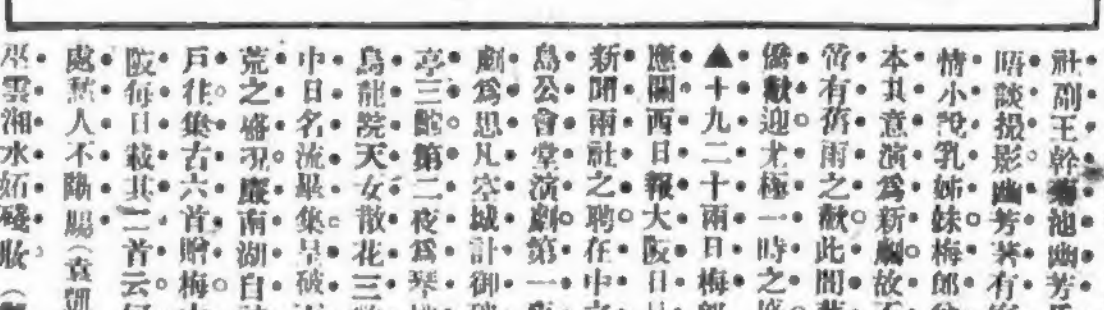 社副王幹菊池幽芳
晤談撮影幽芳著有
情小說乳姊妹梅郎
本丑意演爲新劇故
嘗有舊雨之歡此間
僑歡迎尤極一時之
▲十九二十兩日梅郎
應關西日報大阪日
新聞兩社之聘在中
島公會堂演劇第一
劇爲思凡空城計御
亭三齣第二夜爲琴
烏龍院天女散花三
中日名流畢集呈破
荒之盛況嚴南湖自
戶往集古六首贈梅
阪每日載其二首云
處愁人不斷腸
巫雲湘水妬殘妝